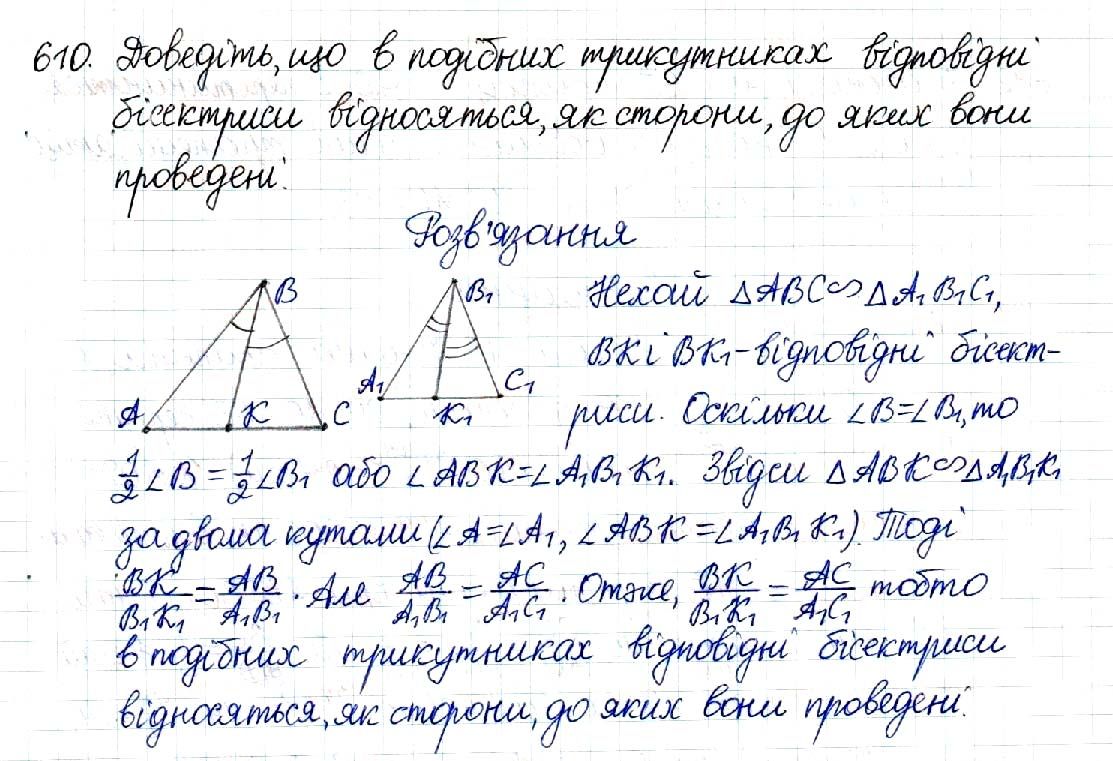 610. Доведіть, що в подібних трикутниках відповідні
бісектриси відносяться, як сторони, до яких вони
проведені.
Розв'язання
B
A
K
C
B₁
A₁
K₁
C₁
Нехай △ABC∽△A₁B₁C₁,
BK і BK₁-відповідні бісект-
риси. Оскільки ∠B=∠B₁, то
1/2∠B=1/2∠B₁ або ∠ABK=∠A₁B₁K₁. Звідси △ABK∽△A₁B₁K₁
за двома кутами (∠A=∠A₁, ∠ABK=∠A₁B₁K₁). Тоді
BK/B₁K₁=AB/A₁B₁. Але AB/A₁B₁=AC/A₁C₁. Отже, BK/B₁K₁=AC/A₁C₁ тобто
в подібних трикутниках відповідні бісектриси
відносяться, як сторони, до яких вони проведені.